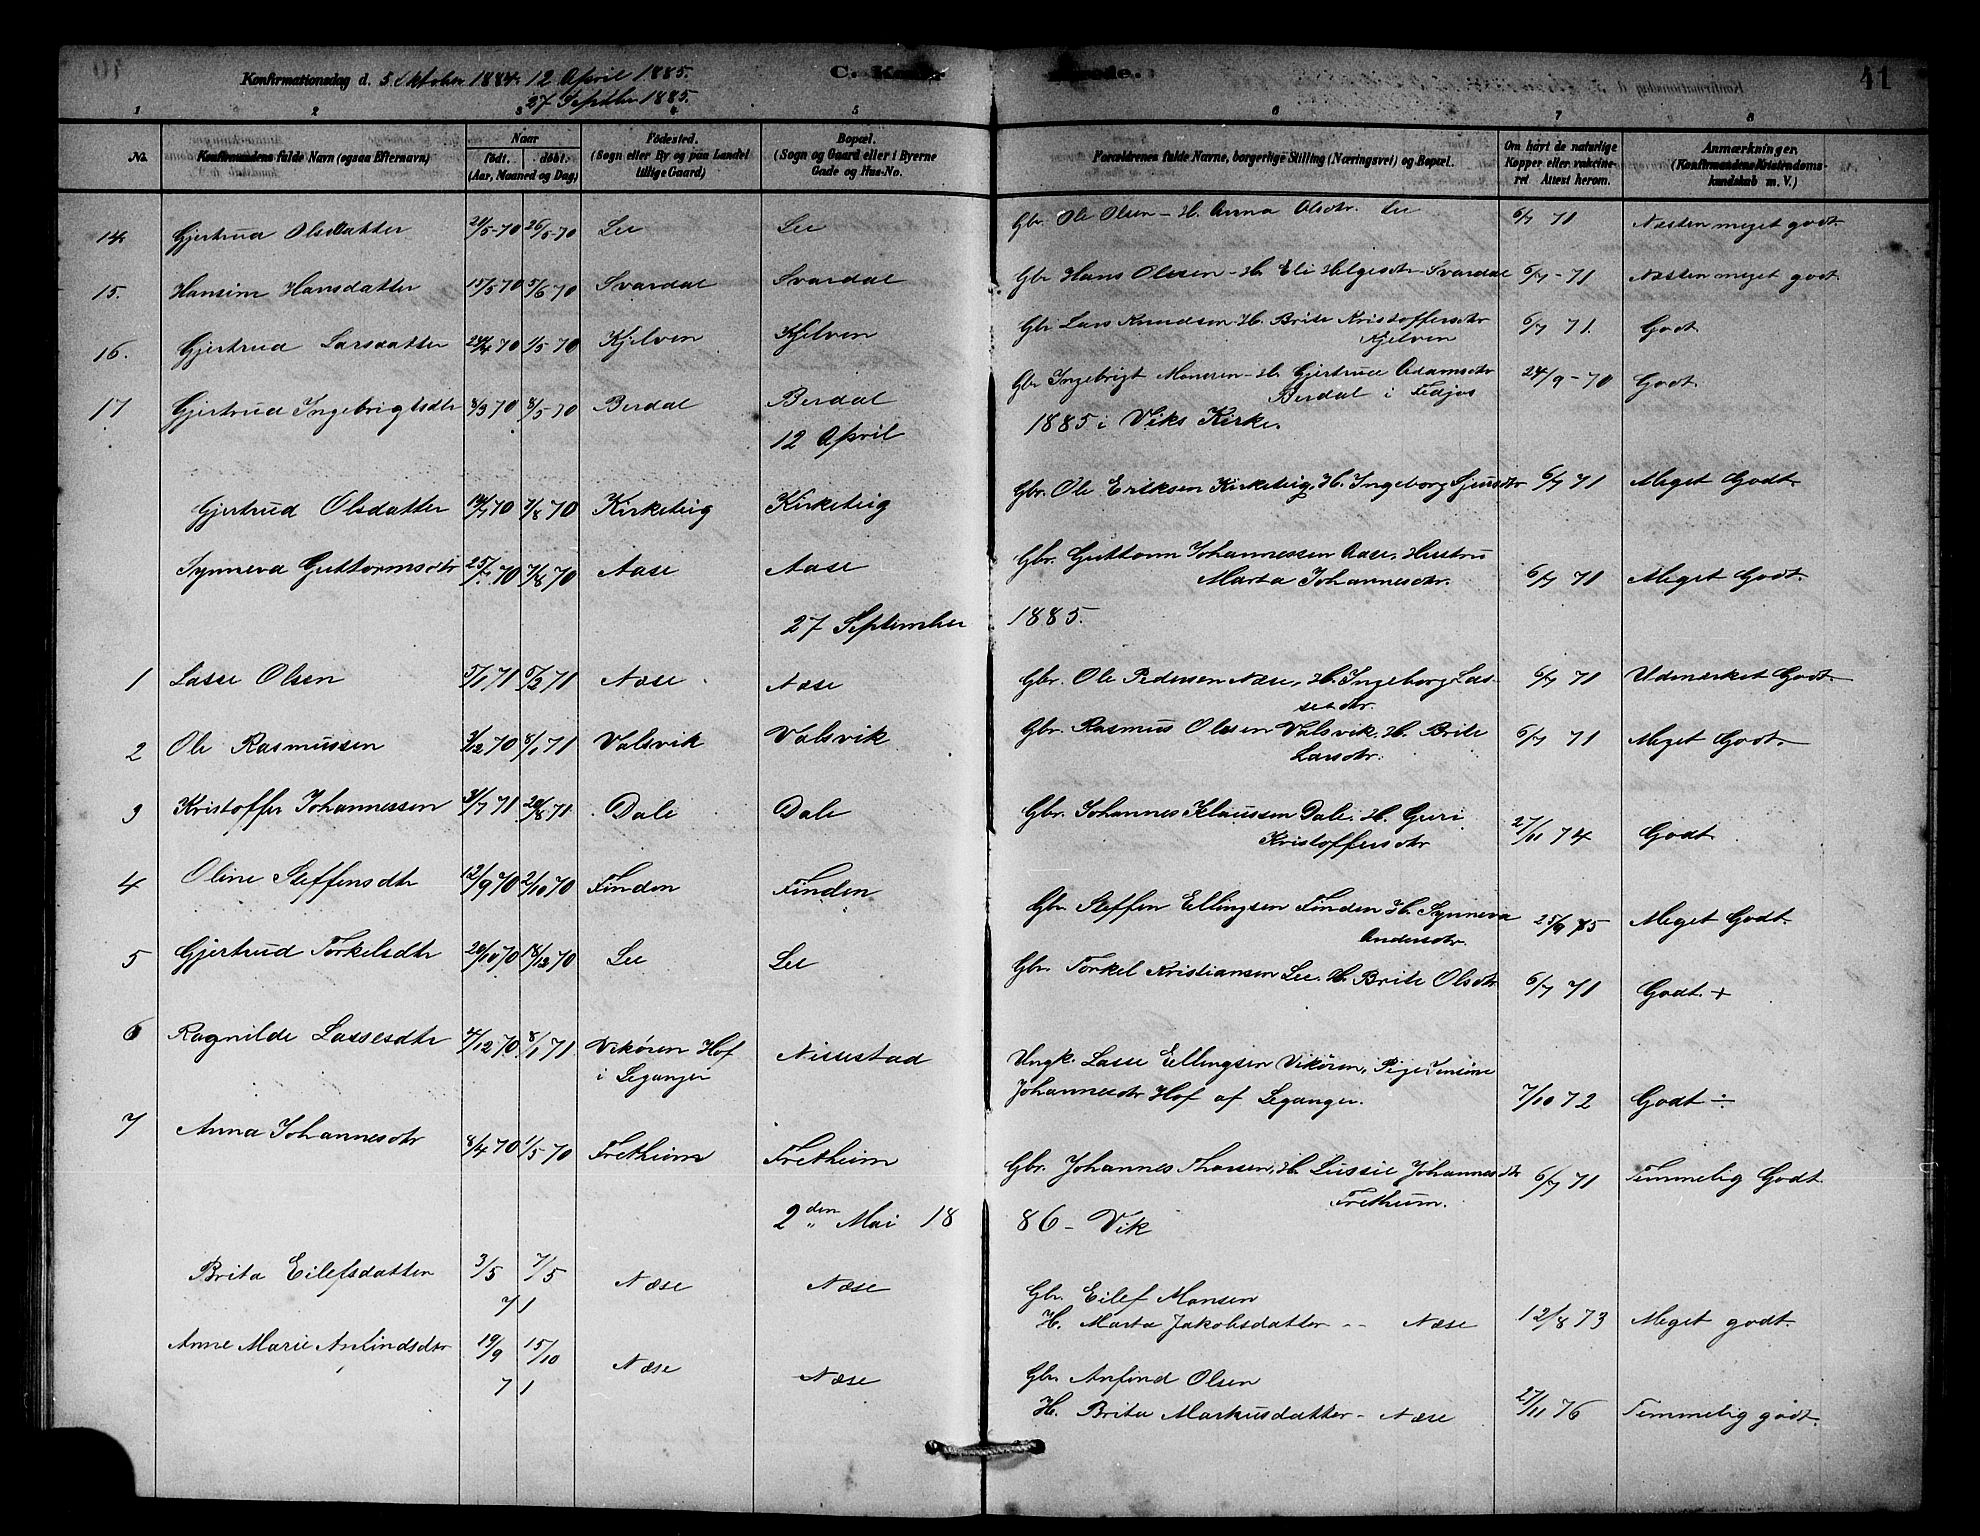 Konfirmationsdag d. 5 Oktober 1884. 12 April 1885.
27 Septbr 1885.
41
1 2 3 4 5 6 7 8
No. Konfirmandens fulde Navn (ogsaa Efternavn) Naar født. døbt. (Aar, Maaned og Dag) Fødested. (Sogn eller By og paa Landet tillige Gaard) Bopæl. (Sogn og Gaard eller i Byerne Gade og Hus-No. Forældrenes fulde Navne, borgerlige Stilling (Næringsvei) og Bopæl. Om havt de naturlige Kopper eller vakcineret Attest herom. Anmærkninger. (Konfirmandens Kristendomskundskab m. V.)
14. Gjertrud Olsdatter 21/5-70 26/5-70 Lee Lee Gbr. Ole Olsen - H. Anna Olsdtr. Lee 6/7 71 Næsten meget godt.
15. Hansine Hansdatter 15/5 70 5/6 70 Svardal Svardal Gbr Hans Olesen - H. Eli Helgesdtr Svardal 6/7-71 Næsten meget godt.
16. Gjertrud Larsdatter 24/4 70 1/5 70 Kjelven Kjelven Gbr Lars Knudsen - H. Brite Kristoffersdtr
Kjelven 6/7 71. Godt
17 Gjertrud Ingebrigtsdtr 8/3 70 8/5-70 Berdal Berdal Gbr Ingebrigt Monsen - H. Gjertrud Adamsdtr
Berdal i Fedjos 24/9-70 Godt
12 April 1885 i Viks Kirke.
Gjertrud Olsdatter 14/7 70 7/8 70 Kirketeig Kirketeig Gbr. Ole Eriksen Kirketeig, H. Ingeborg Sjursdtr 6/7 71 Meget Godt.
Synneva Guttormsdtr 25/7 70 7/8 70 Aase Aase Gbr. Guttorm Johannessen Aase, Hustru
Marta Johannesdtr. 6/7 71 Meget Godt.
27 September 1885.
1 Lasse Olsen 5/1 71 5/2 71 Næse Næse Gbr. Ole Pedersen Næse, H. Ingeborg Las-
sesdtr. 6/7 71 Udmærket Godt.
2 Ole Rasmussen 3/12 70 8/1 71 Valsvik Valsvik Gbr. Rasmus Olesen Valsvik. H. Brite
Larsdtr. 6/7 71 Meget Godt.
3 Kristoffer Johannessen 31/7 71 20/8 71 Dale Dale Gbr. Johannes Klaussen Dale. H. Guri
Kristoffersdtr 27/11 74 Godt
4 Oline Steffensdtr 12/9 70 2/10 70 Finden Finden Gbr. Steffen Ellingsen Finden H. Synneva
Andersdtr. 25/9 85 Meget Godt.
5 Gjertrud Torkelsdtr 20/10 70 18/12 70 Lee Lee Gbr. Torkel Kristiansen Lee. H. Brite Olsdtr 6/7 71 Godt +
6 Ragnilde Lassesdtr 7/12 70 8/1 71 Vikøren Hof
i Leganger Nissestad Ungk. Lasse Ellingsen Vikøren, Pige
Johannesdtr Hof af Leganger. 7/10 72 Godt ÷
7 Anna Johannesdtr 8/4 70 1/5 70 Fretheim Fretheim Gbr. Johannes H. Lussie Johannesdtr
Fretheim. 6/7 71 Temmelig Godt
2den Mai 1886 - Vik
Brita Eilefsdatter 3/5 7/5
71 Næse Næse Gbr. Eilef Monsen
H. Marta Jakobsdatter -- Næse 12/8 73 Meget godt.
Anne Marie Anfindsdtr 19/9 15/10
71 Næse Næse Gbr. Anfind Olsen
H. Brita Markusdatter - Næse 27/11 76 Temmelig godt.